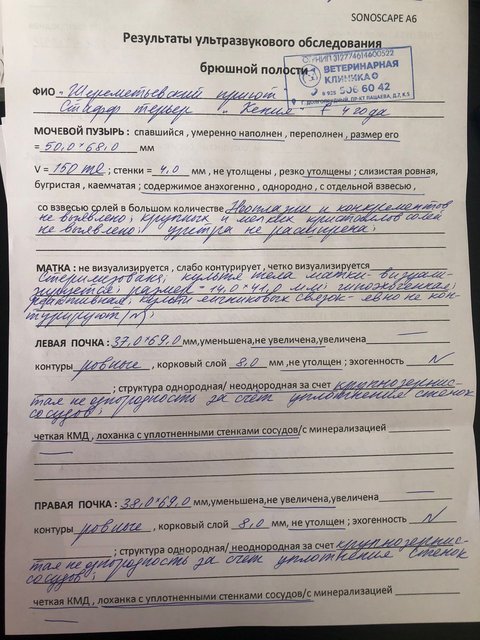 SONOSCAPE A6
Результаты ультразвукового обследования
брюшной полости
ОГРНИП 312774614600522
ВЕТЕРИНАРНАЯ
КЛИНИКА
8 925 506 60 42
Г. ДОЛГОПРУДНЫЙ, ПР-КТ ПАЦАЕВА, Д.7, К.5
ФИО „Шереметьевский приют"
Стафф терьер „Кения" 4 года
МОЧЕВОЙ ПУЗЫРЬ : спавшийся , умеренно наполнен , переполнен , размер его
= 50,0*68,0 мм
V = 150 ml ; стенки = 4,0 мм , не утолщены , резко утолщены ; слизистая ровная,
бугристая , каемчатая ; содержимое анэхогенно , однородно , с отдельной взвесью ,
со взвесью солей в большом количестве Неоплазии и конкрементов
не выявлено; крупных и мелких кристаллов солей
не выявлено; уретра не расширена;
МАТКА : не визуализируется , слабо контурирует , четко визуализируется
Стерилизована; культя тела матки - визуали-
зируется; размер = 14,0*41,0 мм; гипоэхогенная;
культи яичниковых связок - не кон-
турируют (N);
ЛЕВАЯ ПОЧКА : 37,0*69,0 мм,уменьшена,не увеличена,увеличена
контуры ровные , корковый слой 8,0 мм ,не утолщен ; эхогенность N
; структура однородная/ неоднородная за счет крупнозернис-
тая неоднородность за счёт уплотнения стенок
сосудов;
четкая КМД , лоханка с уплотненными стенками сосудов/с минерализацией
ПРАВАЯ ПОЧКА : 38,0*69,0 мм,уменьшена,не увеличена,увеличена
контуры ровные , корковый слой 8,0 мм, не утолщен ; эхогенность N
; структура однородная/ неоднородная за счет крупнозернис-
тая неоднородность за счёт уплотнения стенок
сосудов;
четкая КМД , лоханка с уплотненными стенками сосудов/с минерализацией